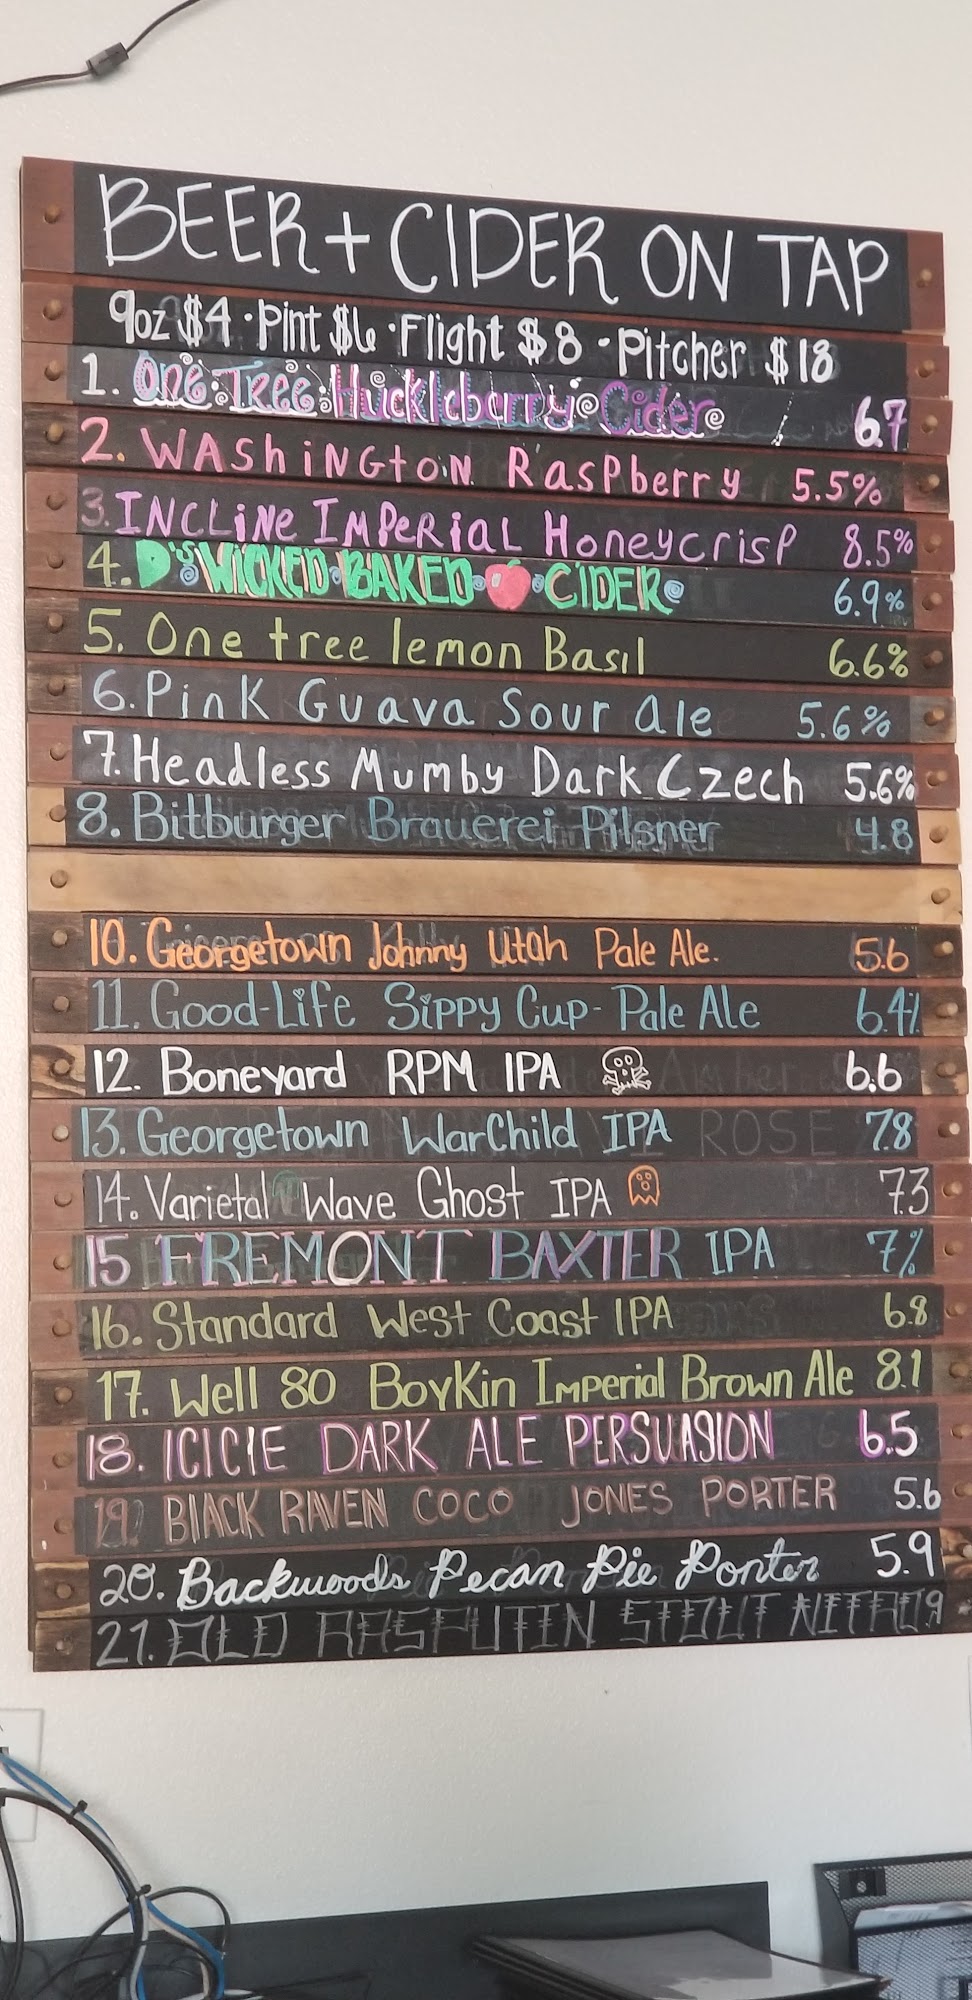 BEER + CIDER ON TAP
9oz $4 · Pint $6 · Flight $8 · Pitcher $18
1. One Tree Huckleberry Cider 6.7
2. WAShiNGtoN RasPberry 5.5%
3. INCLiNe IMPeRiaL Honeycrisp 8.5%
4. D's WICKED BAKED CIDER 6.9%
5. One tree lemon Basil 6.6%
6. Pink Guava Sour ale 5.6%
7. Headless Mumby Dark Czech 5.6%
8. Bitburger Brauerei Pilsner 4.8
10. Georgetown Johnny Utah Pale Ale. 5.6
11. Good-Life Sippy Cup - Pale Ale 6.4%
12. Boneyard RPM IPA 6.6
13. Georgetown WarChild IPA 7.8
14. Varietal Wave Ghost IPA 7.3
15 FREMONT BAXTER IPA 7%
16. Standard West Coast IPA 6.8
17. Well 80 BoyKin Imperial Brown Ale 8.1
18. ICICIE DARK ALE PERSUASION 6.5
19. BLACK RAVEN COCO JONES PORTER 5.6
20. Backwoods Pecan Pie Porter 5.9
21. OLD RASPUTIN STOUT NITRO